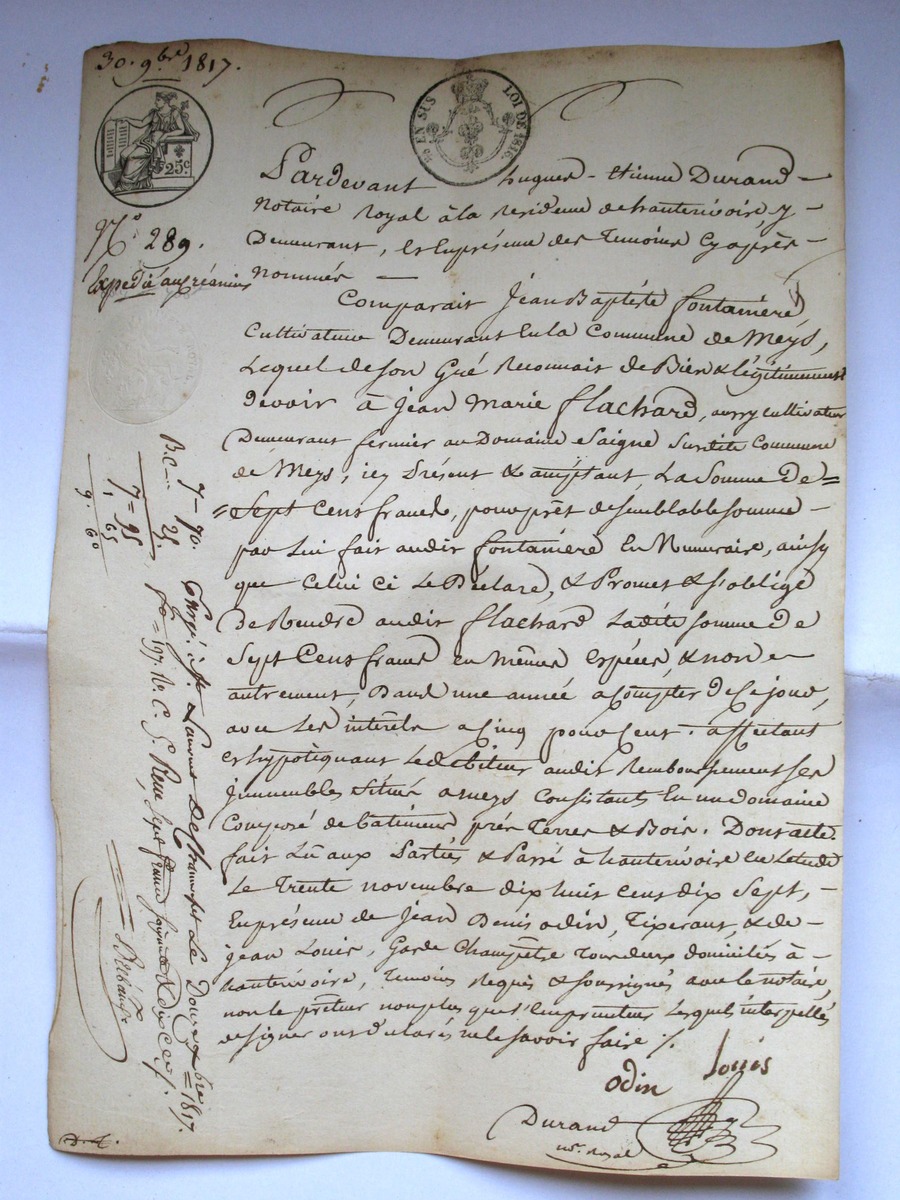 30. 9bre 1817.
EN SUS LOI DE 1816.
25c
N° 289.
Expedié au créancier
Pardevant hugues-étienne Durand-
Notaire Royal à la Residence de hauterivoire, y-
Demeurant, & En présence des Temoins Cy après-
nommés —
Comparait Jean Baptiste fontaniere,
Cultivateur Demeurant En la Commune de Meys,
Lequel de son Gré Reconnait de Bien & légitimement
Devoir à Jean Marie flachard, aussy cultivateur
Demeurant fermier au Domaine Saigne Susdite Commune
de Meys, icy Présent & acceptant, La Somme De=
=Sept Cens francs, pour prêt de semblable somme-
par Lui fait audit fontaniere En Numeraire, ainsy
que Celui ci Le Déclare, & Promet & s'oblige
De Rendre audit flachard Ladite somme de
Sept Cens francs en Mêmes espéces, & non
autrement, Dans une année a Compter de Ce jour,
avec Les intérêts a Cinq pour Cent. affectant
& hypotéquant Le débiteur audit Remboursement ses
immeubles Situés a meys Consistants En un domaine
Composé de batimens prés Terres & Bois. Dont acte
fait Lû aux Parties & Passé à hauterivoire en L'etude
Le Trente novembre dix huit cens dix Sept,-
En présence de Jean Denis odin, Tixerant, & de-
jean Louis, Garde Champêtre Tous deux domiciliés à-
hauterivoire, Temoins Requis & soussignés avec le notaire,
non le prêteur non plus que l'Emprunteur Lesquels interpellés
de signer ont déclarés ne le savoir faire /.
odin Louis
Durand
no. Royal
B.C. 7-70.
25.
7=95
1, 65
9. 60
Laurent Le Douze Xbre =1817.
fo=197. Ro. C. 6. Reçu Sept francs soixante & dix cent.
D.f.